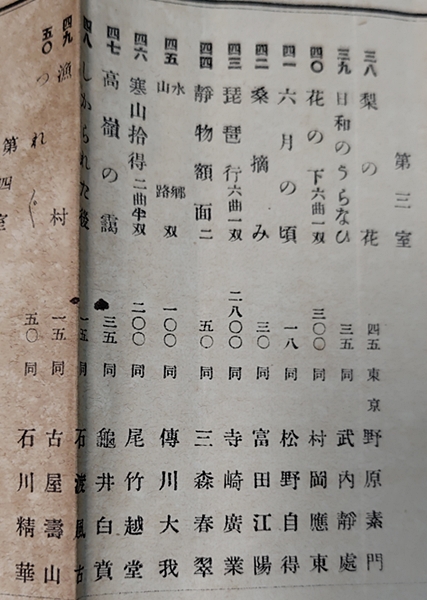 第三室
三八 梨の花 四五 東京 野原素門
三九 日和のうらなひ 三五 同 武内靜處
四〇 花の下 六曲一双 三〇〇 同 村岡應東
四一 六月の頃 一八 同 松野自得
四二 桑摘み 三〇 同 富田江陽
四三 琵琶行 六曲一双 二八〇〇 同 寺崎廣業
四四 靜物額面 二 五〇 同 三森春翠
四五 水鄕 山路 双 一〇〇 同 傳川大我
四六 寒山拾得 二曲半双 二〇〇 同 尾竹越堂
四七 高嶺の靄 三五 同 龜井白賁
四八 しかられた後 一五 同 石渡風古
四九 漁村 一五 同 古屋壽山
五〇 つれ〲 五〇 同 石川精華
第四室